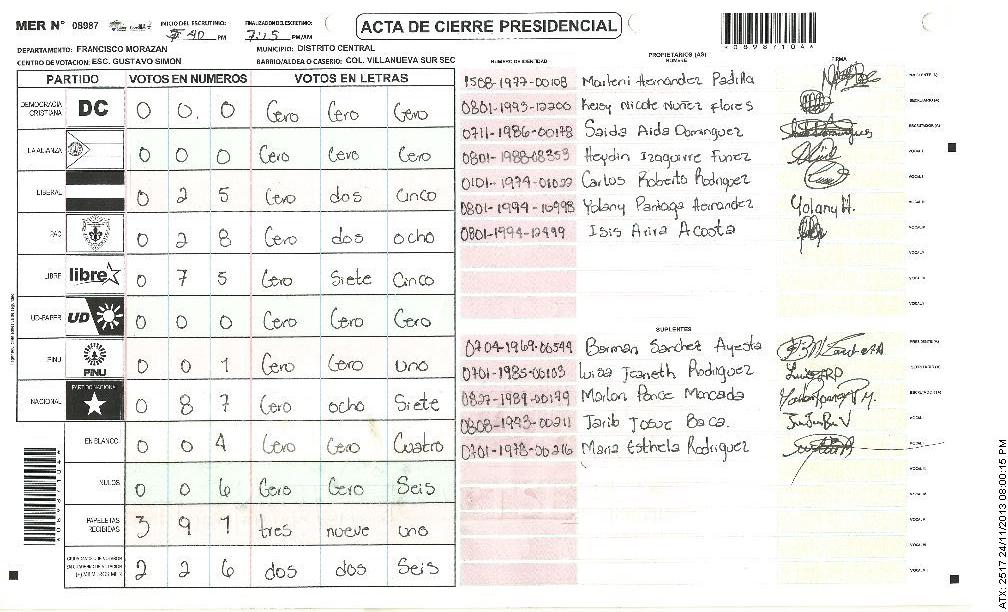 MER N° 08987
INICIO DEL ESCRUTINIO: 40 PM
FINALIZACION DEL ESCRUTINIO: 7:15 PM/AM
ACTA DE CIERRE PRESIDENCIAL
*08987104*
DEPARTAMENTO: FRANCISCO MORAZAN
MUNICIPIO: DISTRITO CENTRAL
CENTRO DE VOTACION: ESC. GUSTAVO SIMON
BARRIO/ALDEA O CASERIO: COL. VILLANUEVA SUR SEC
PARTIDO VOTOS EN NUMEROS VOTOS EN LETRAS
DEMOCRACIA CRISTIANA DC 0 0 0 Cero Cero Cero
LA ALIANZA 0 0 0 Cero Cero Cero
LIBERAL 0 2 5 Cero dos Cinco
PAC 0 2 8 Cero dos ocho
LIBRE libre 0 7 5 Cero Siete Cinco
UD-FAPER UD 0 0 0 Cero Cero Cero
PINU PINU 0 0 1 Cero Cero uno
NACIONAL PARTIDO NACIONAL 0 8 7 Cero ocho Siete
EN BLANCO 0 0 4 Cero Cero Cuatro
NULOS 0 0 6 Cero Cero Seis
PAPELETAS RECIBIDAS 3 9 1 tres nueve uno
2 2 6 dos dos Seis
NUMERO DE IDENTIDAD PROPIETARIOS (AS) NOMBRE FIRMA
1508-1977-00108 Marleni Hernandez Padilla
0801-1993-12200 Keisy Nicole Nuñez flores
0711-1986-00178 Saida Aida Dominguez
0801-1988-08353 Heydin Izaguirre Funez
0101-1974-01022 Carlos Roberto Rodriguez
0801-1994-10998 Yolany Pantoga Hernandez Yolany H.
0801-1994-12499 Isis Arira Acosta
SUPLENTES
0704-1969-00544 Berman Sanchez Ayesta
0701-1985-00103 Luisa Jeaneth Rodriguez
0827-1989-00179 Marlon Ponce Moncada
0808-1993-00211 Jarib Josue Baca.
0701-1978-00216 Maria Esthela Rodriguez
ATX: 2517 24/11/2013 08:00:15 PM